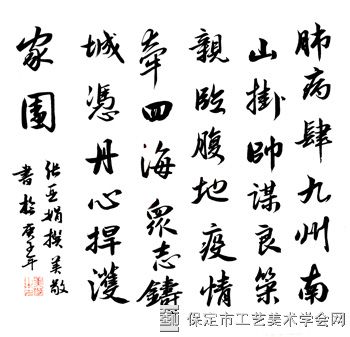 肺病肆九州南
山掛帥謀良策
親臨腹地疫情
牽四海衆志鑄
城憑丹心捍護
家園
张亞娟撰美敬
書於庚子年
保定市工艺美术学会网